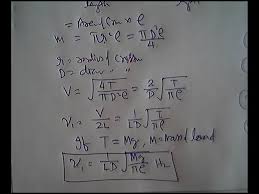 length
= Area of Cross × ρ
m = πr²ρ = πD²ρ/4
r = radius of cross
D = diam " "
V = √(4T/πD²ρ) = 2/D √(T/πρ)
ν₁ = V/2L = 1/LD √(T/πρ)
If T = Mg, M = mass
ν₁ = 1/LD √(Mg/πρ) Hz